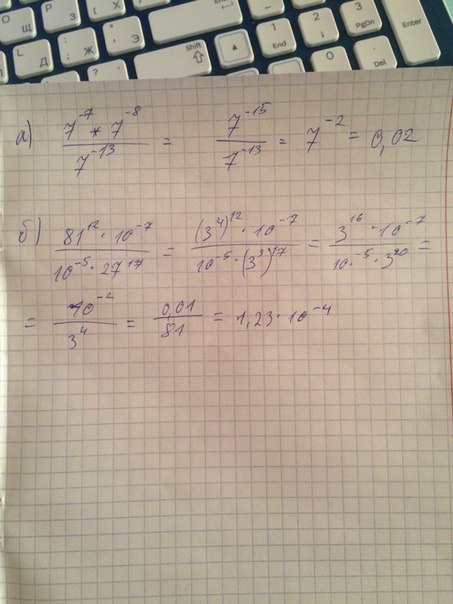 Щ О Х Ж Э
Shift 1 End 2 3 PgDn 0 . Del Enter
а) (7^-7 * 7^-8)/7^-13 = 7^-15/7^-13 = 7^-2 = 0,02
б) (81^12 · 10^-7)/(10^-5 · 27^17) = ((3^4)^12 · 10^-7)/(10^-5 · (3^3)^17) = (3^16 · 10^-7)/(10^-5 · 3^20) =
= 10^-2/3^4 = 0,01/81 = 1,23 · 10^-4